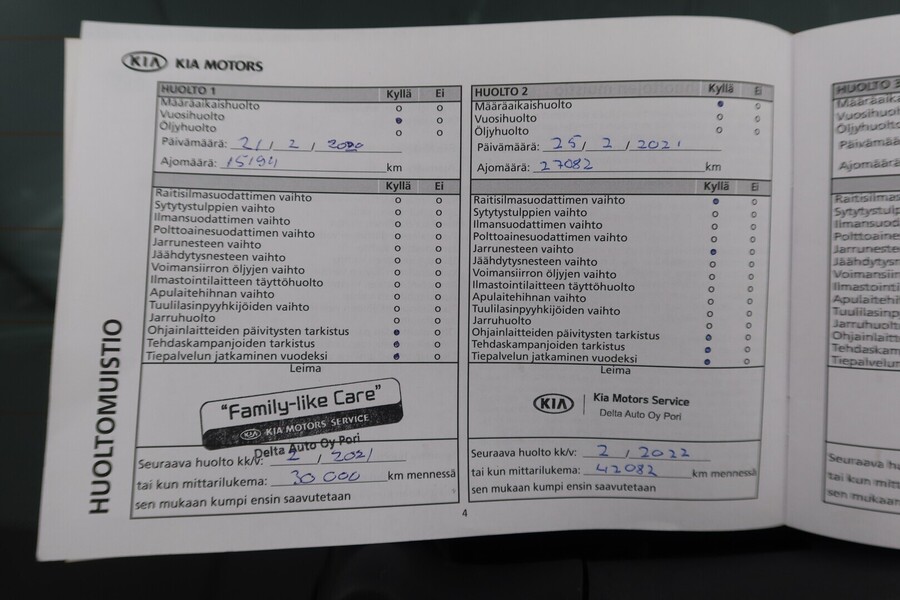 KIA KIA MOTORS
HUOLTOMUISTIO
HUOLTO 1 Kyllä Ei
Määräaikaishuolto
Vuosihuolto
Öljyhuolto
Päivämäärä: 21 / 2 / 2020
Ajomäärä: 15194 km
Kyllä Ei
Raitisilmasuodattimen vaihto
Sytytystulppien vaihto
Ilmansuodattimen vaihto
Polttoainesuodattimen vaihto
Jarrunesteen vaihto
Jäähdytysnesteen vaihto
Voimansiirron öljyjen vaihto
Ilmastointilaitteen täyttöhuolto
Apulaitehihnan vaihto
Tuulilasinpyyhkijöiden vaihto
Jarruhuolto
Ohjainlaitteiden päivitysten tarkistus
Tehdaskampanjoiden tarkistus
Tiepalvelun jatkaminen vuodeksi
Leima
"Family-like Care"
KIA KIA MOTORS SERVICE
Delta Auto Oy Pori
Seuraava huolto kk/v: 2 / 2021
tai kun mittarilukema: 30 000 km mennessä
sen mukaan kumpi ensin saavutetaan
HUOLTO 2 Kyllä Ei
Määräaikaishuolto
Vuosihuolto
Öljyhuolto
Päivämäärä: 25 / 2 / 2021
Ajomäärä: 27082 km
Kyllä Ei
Raitisilmasuodattimen vaihto
Sytytystulppien vaihto
Ilmansuodattimen vaihto
Polttoainesuodattimen vaihto
Jarrunesteen vaihto
Jäähdytysnesteen vaihto
Voimansiirron öljyjen vaihto
Ilmastointilaitteen täyttöhuolto
Apulaitehihnan vaihto
Tuulilasinpyyhkijöiden vaihto
Jarruhuolto
Ohjainlaitteiden päivitysten tarkistus
Tehdaskampanjoiden tarkistus
Tiepalvelun jatkaminen vuodeksi
Leima
KIA Kia Motors Service
Delta Auto Oy Pori
Seuraava huolto kk/v: 2 / 2022
tai kun mittarilukema: 42082 km mennessä
sen mukaan kumpi ensin saavutetaan
4
HUOLTO 3